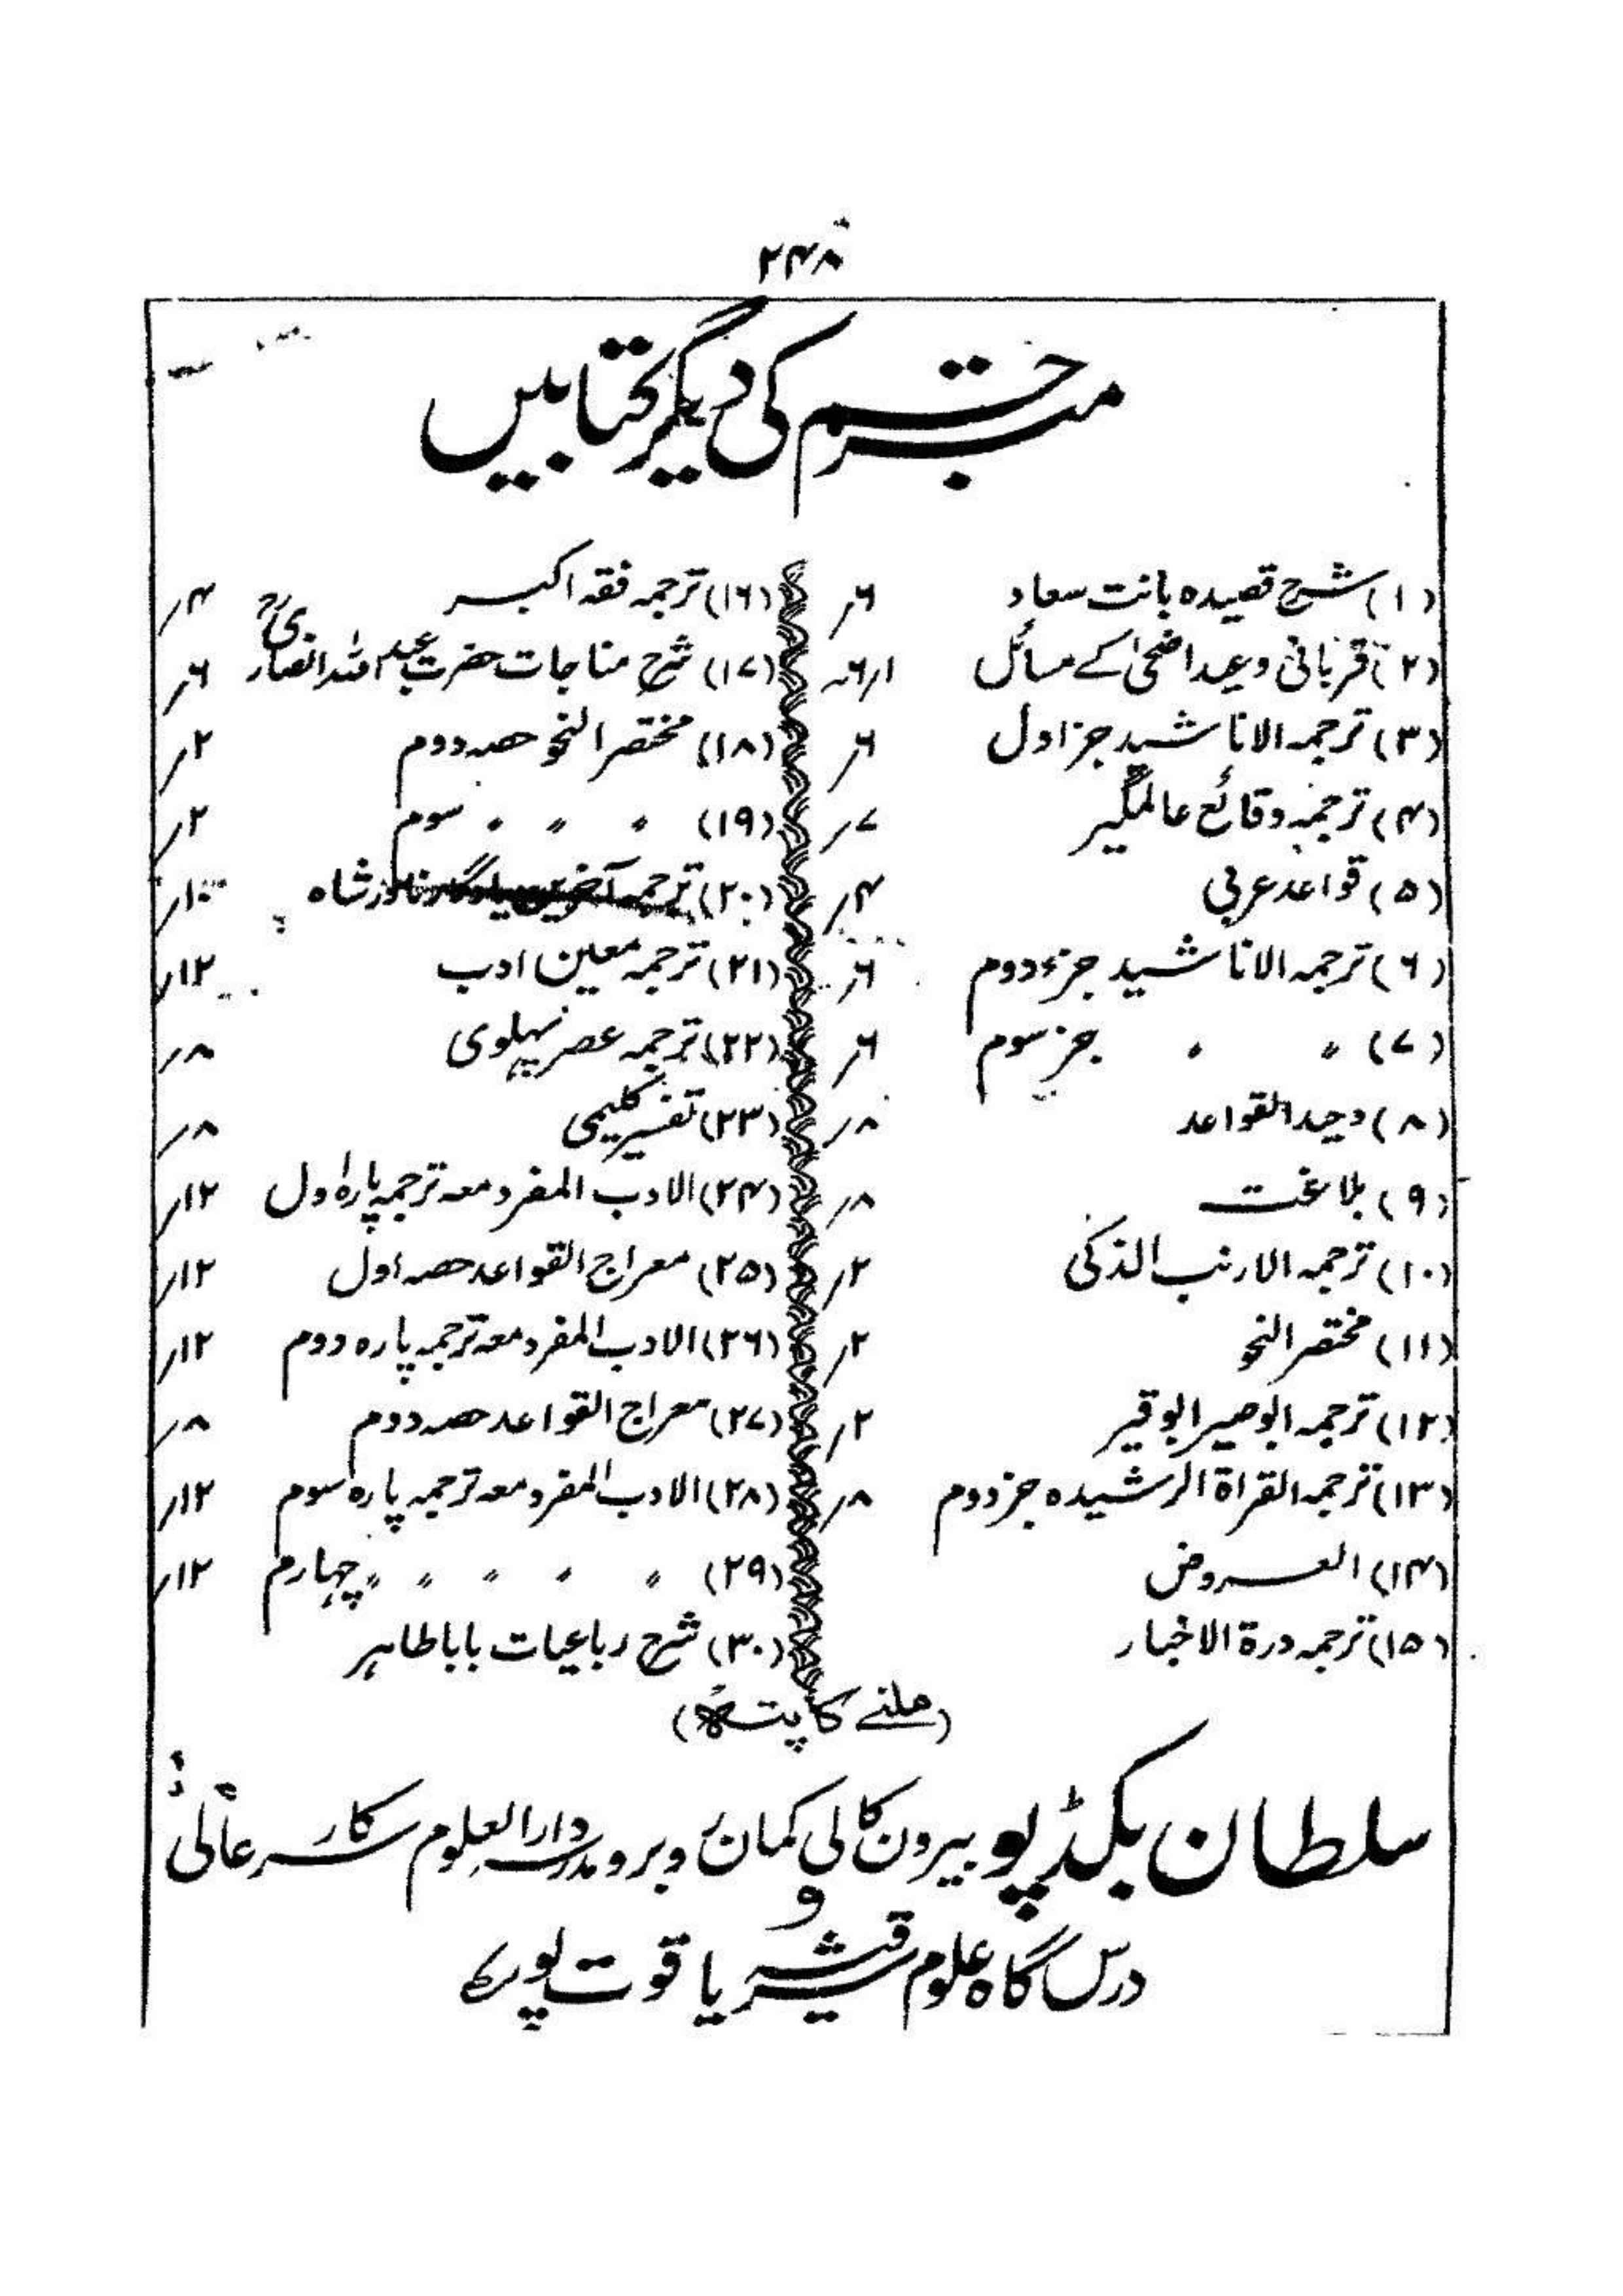 ۲۴۸
مترجم کی دیگر کتابیں
(۱) شرح قصیدہ بانت سعاد ۶ر
(۲) قربانی و عید اضحیٰ کے مسائل ۱ر۶
(۳) ترجمہ الاناشید جز اول ۶ر
(۴) ترجمہ وقائع عالمگیر ۷ر
(۵) قواعد عربی ۴ر
(۶) ترجمہ الاناشید جزء دوم ۶ر
(۷) 〃 〃 جز سوم ۶ر
(۸) وحید القواعد ۸ر
(۹) بلاغت ۸ر
(۱۰) ترجمہ الارنب الذکی ۲ر
(۱۱) مختصر النحو ۲ر
(۱۲) ترجمہ ابوصیر ابوقیر ۲ر
(۱۳) ترجمہ القراۃ الرشیدہ جز دوم ۸ر
(۱۴) العروض
(۱۵) ترجمہ درۃ الاخبار
(۱۶) ترجمہ فقہ اکبر ۴ر
(۱۷) شرح مناجات حضرت عبداللہ انصاریؒ ۶ر
(۱۸) مختصر النحو حصہ دوم ۲ر
(۱۹) 〃 〃 〃 سوم ۲ر
(۲۰) ترجمہ آخرین یادگار نادر شاہ ۱۰ر
(۲۱) ترجمہ معین ادب ۱۲ر
(۲۲) ترجمہ عصر پہلوی ۸ر
(۲۳) تفسیر کلیمی ۸ر
(۲۴) الادب المفرد معہ ترجمہ پارہ اول ۱۲ر
(۲۵) معراج القواعد حصہ اول ۱۲ر
(۲۶) الادب المفرد معہ ترجمہ پارہ دوم ۱۲ر
(۲۷) معراج القواعد حصہ دوم ۸ر
(۲۸) الادب المفرد معہ ترجمہ پارہ سوم ۱۲ر
(۲۹) 〃 〃 〃 〃 〃 چہارم ۱۲ر
(۳۰) شرح رباعیات بابا طاہر
(ملنے کا پتہ)
سلطان بکڈپو بیرون کالی کمان روبرو مدرسہ دارالعلوم سرکار عالی
و
درس گاہ علوم شرقیہ یاقوت پورہ